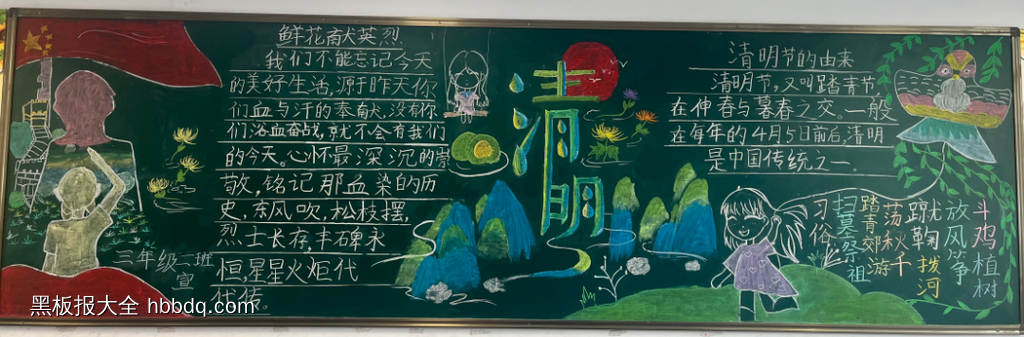 鲜花献英烈
我们不能忘记今天
的美好生活,源于昨天你
们血与汗的奉献,没有你
们浴血奋战,就不会有我们
的今天。心怀最深沉的崇
敬,铭记那血染的历
史,东风吹,松枝摆,
烈士长存,丰碑永
恒,星星火炬代
代传。
三年级二班
宣
清明
清明节的由来
清明节,又叫踏青节,
在仲春与暮春之交。一般
在每年的4月5日前后,清明
是中国传统之一
习俗
扫墓祭祖
踏青郊游
荡秋千
蹴鞠
拨河
放风筝
斗鸡
植树
黑板报大全 hbbdq.com